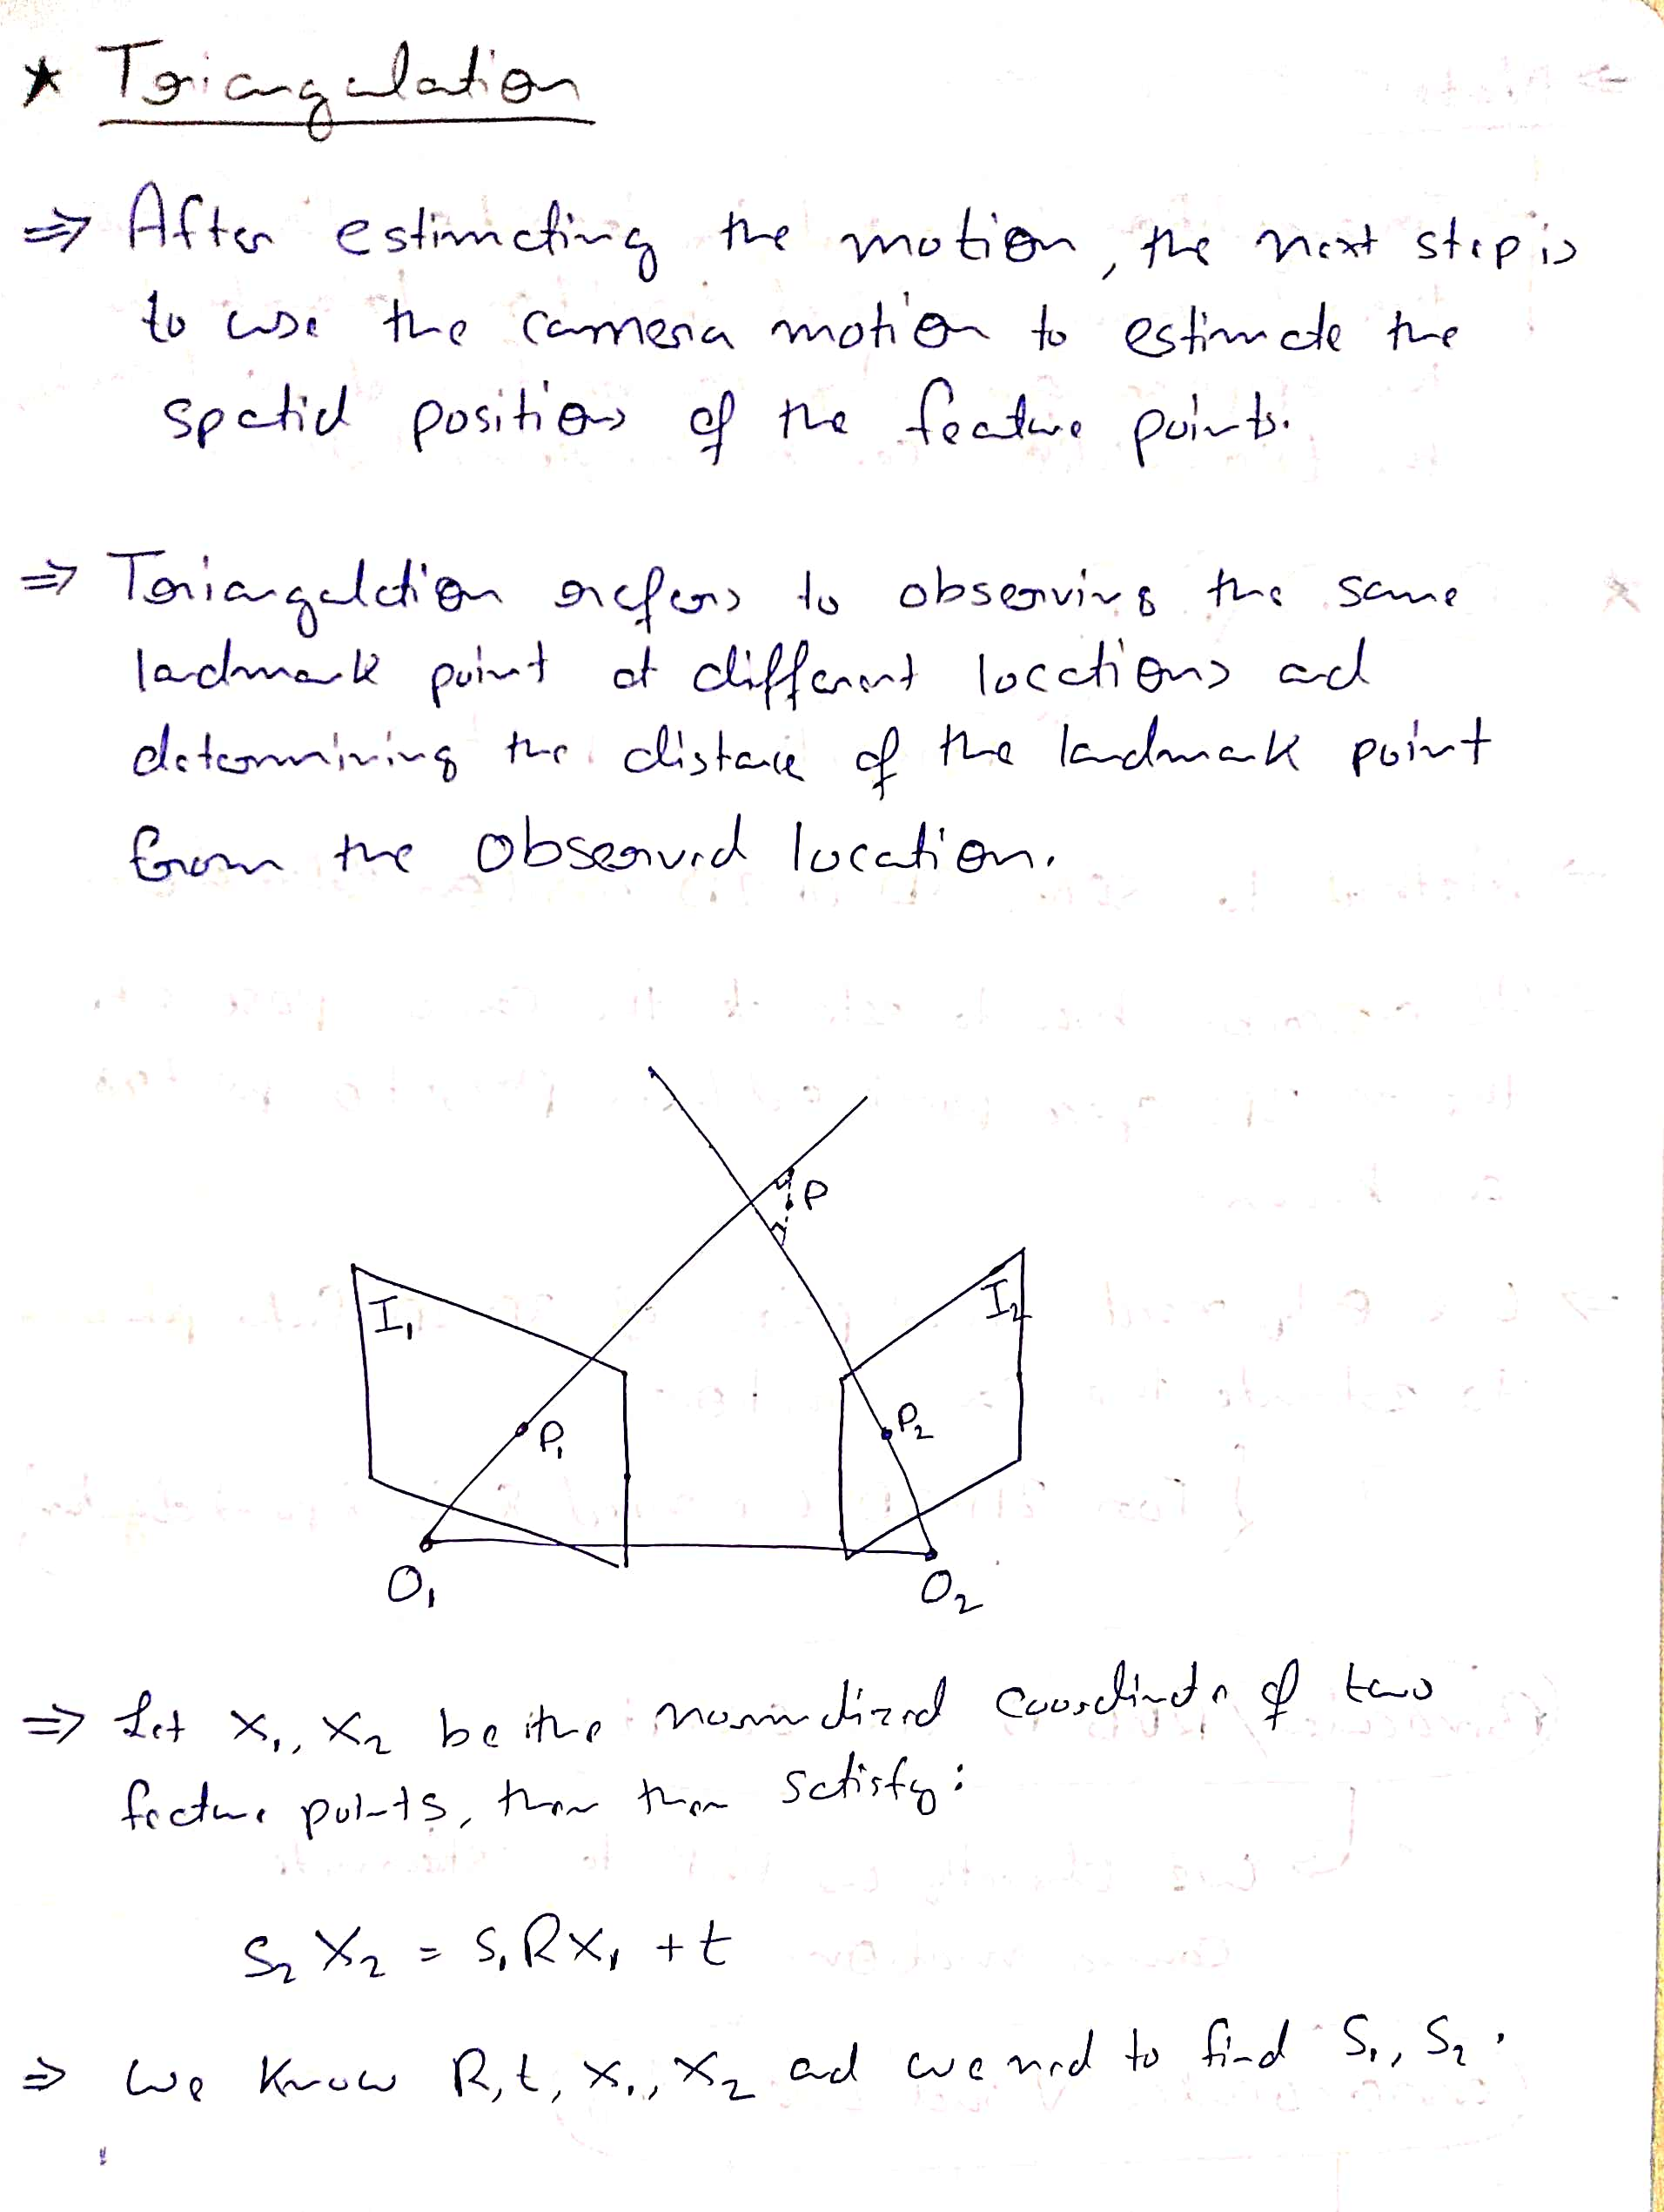 * Triangulation
⇒ After estimating the motion, the next step is
to use the camera motion to estimate the
spatial positions of the feature points.
⇒ Triangulation refers to observing the same
landmark point at different locations and
determining the distance of the landmark point
from the observed location.
P
I₁
I₂
P₁
P₂
O₁
O₂
⇒ Let x₁, x₂ be the normalized coordinate of two
feature points, then they satisfy:
S₂ X₂ = S₁ R X₁ + t
⇒ We know R, t, x₁, x₂ and we need to find S₁, S₂.